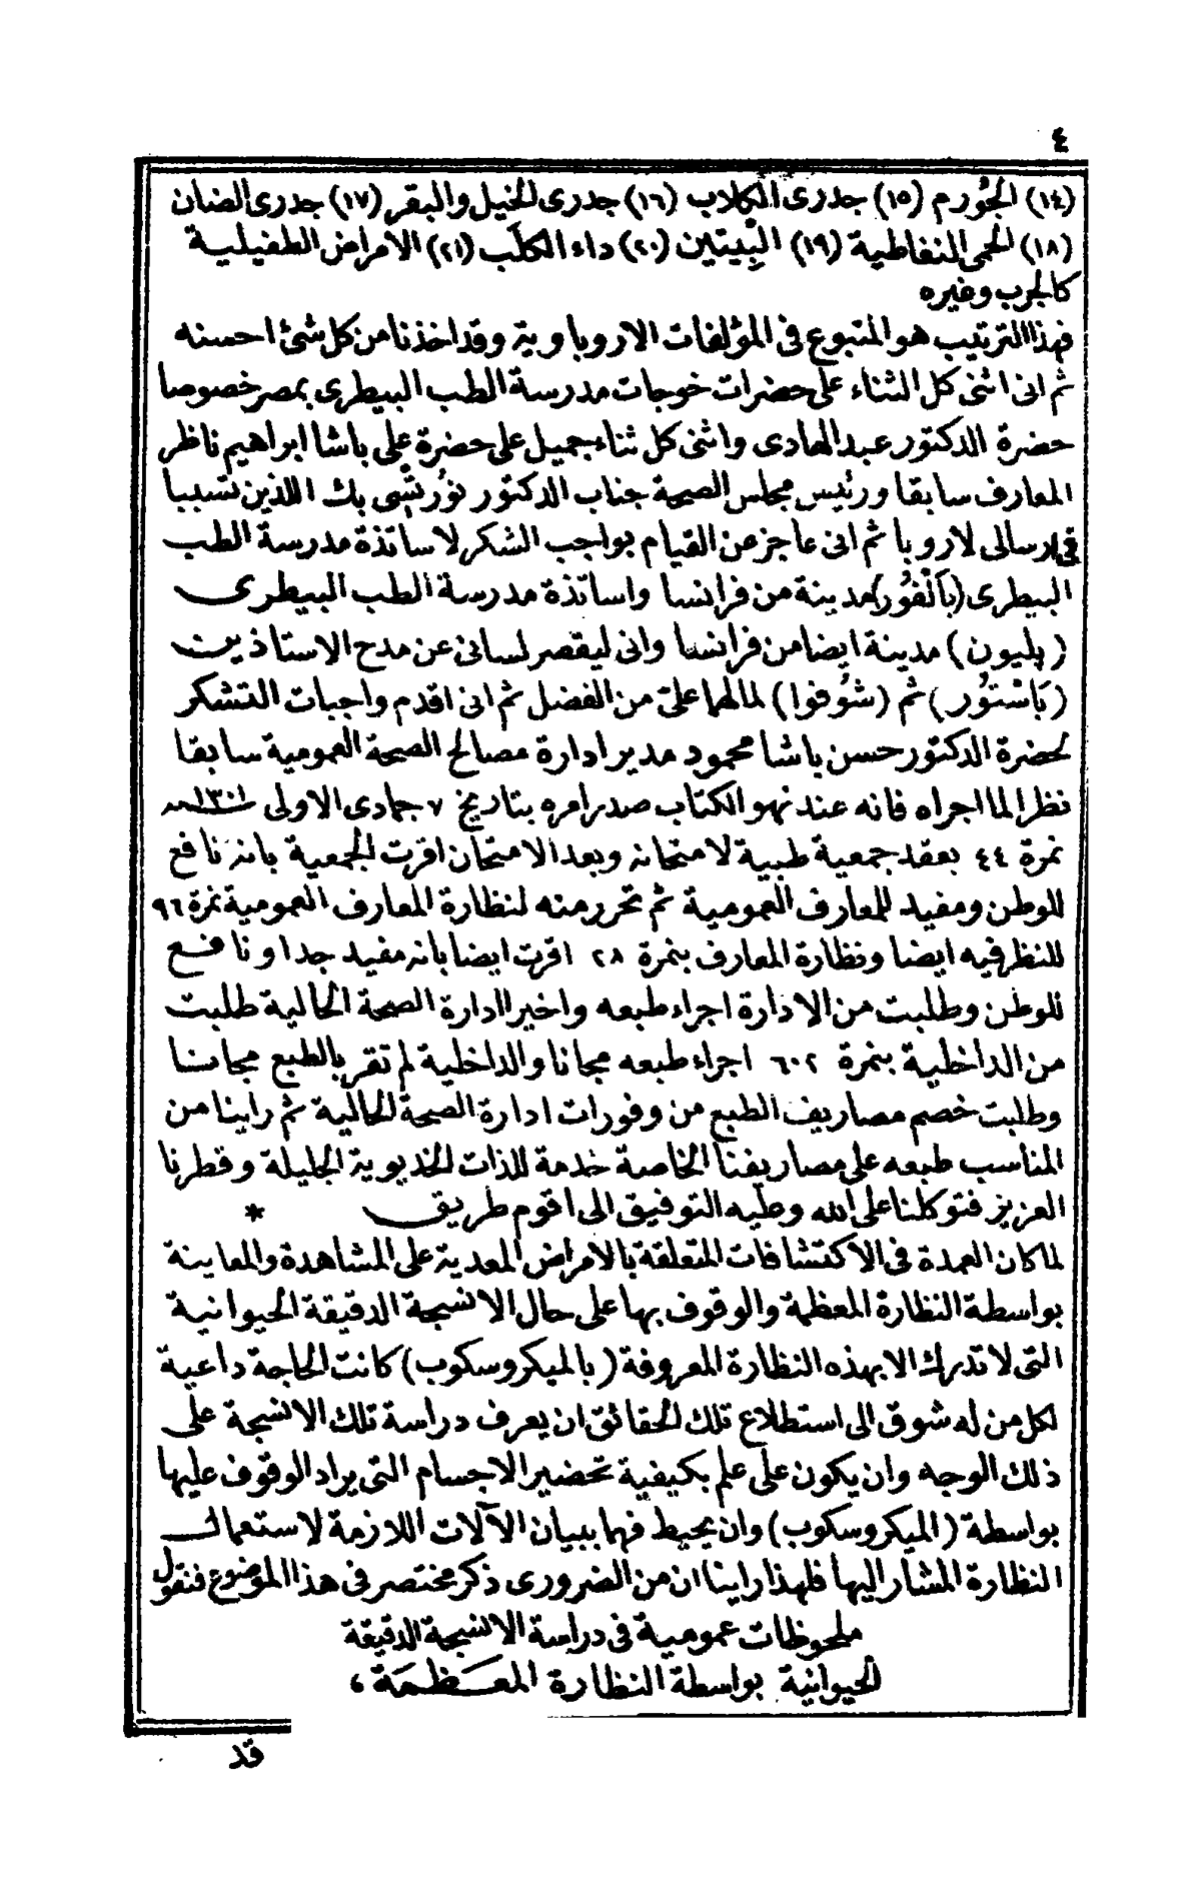 ٤
(١٤) الجُوُرم (١٥) جدرى الكلاب (١٦) جدرى الخيل والبقر (١٧) جدرى الضان
(١٨) الحمى النفاطية (١٩) البِّيتين (٢٠) داء الكلَب (٢١) الامراض الطفيلية
كالجرب وغيره
فهذا الترتيب هو المتبوع فى المؤلفات الاروباوية وقد اخذنا من كل شئ احسنه
ثم انى اثنى كل الثناء على حضرات خوجات مدرسة الطب البيطرى بمصر خصوصا
حضرة الدكتور عبد الهادى واثنى كل ثناء جميل على حضرة على باشا ابراهيم ناظر
المعارف سابقا ورئيس مجلس الصحة جناب الدكتور نوُرتشِّى بك اللذين تسببا
فى ارسالى لاروبا ثم انى عاجز عن القيام بواجب الشكر لاساتذة مدرسة الطب
البيطرى (بَالْفوُر) مدينة من فرانسا واساتذة مدرسة الطب البيطرى
(بليون) مدينة ايضا من فرانسا وانى ليقصر لسانى عن مدح الاستاذين
(بَاسْتوُر) ثم (شوُفوا) لما لهما علىّ من الفضل ثم انى اقدم واجبات التشكر
لحضرة الدكتور حسن باشا محمود مدير ادارة مصالح الصحة العمومية سابقا
نظرا لما اجراه فانه عند نهو الكتاب صدر امره بتاريخ ٧ جمادى الاولى سنة ١٣٠١
نمرة ٤٤ بعقد جمعية طبية لامتحانه وبعد الامتحان اقرت الجمعية بانه نافع
للوطن ومفيد للمعارف العمومية ثم تحرر منه لنظارة المعارف العمومية نمرة ٩٦
للنظر فيه ايضا ونظارة المعارف بنمرة ٢٨ اقرت ايضا بانه مفيد جدا ونافع
للوطن وطلبت من الادارة اجراء طبعه واخيرا ادارة الصحة الحالية طلبت
من الداخلية بنمرة ٦٠٢ اجراء طبعه مجانا والداخلية لم تقر بالطبع مجانا
وطلبت خصم مصاريف الطبع من وفورات ادارة الصحة الحالية ثم راينا من
المناسب طبعه على مصاريفنا الخاصة خدمة للذات الخديوية الجليلة وقطرنا
العزيز فتوكلنا على الله وطلبه التوفيق الى اقوم طريق *
لما كان العمدة فى الاكتشافات المتعلقة بالامراض المعدية على المشاهدة والمعاينة
بواسطة النظارة المعظمة والوقوف بها على حال الانسجة الدقيقة الحيوانية
التى لا تدرك الا بهذه النظارة المعروفة (بالميكروسكوب) كانت الحاجة داعية
لكل من له شوق الى استطلاع تلك الحقائق ان يعرف دراسة تلك الانسجة على
ذلك الوجه وان يكون على علم بكيفية تحضير الاجسام التى يراد الوقوف عليها
بواسطة (الميكروسكوب) وان يحيط فهما ببيان الآلات اللازمة لاستعمال
النظارة المشار اليها فلهذا راينا ان من الضرورى ذكر مختصر فى هذا الموضوع فنقول
ملحوظات عمومية فى دراسة الانسجة الدقيقة
الحيوانية بواسطة النظارة المعَظمَة ،
قد